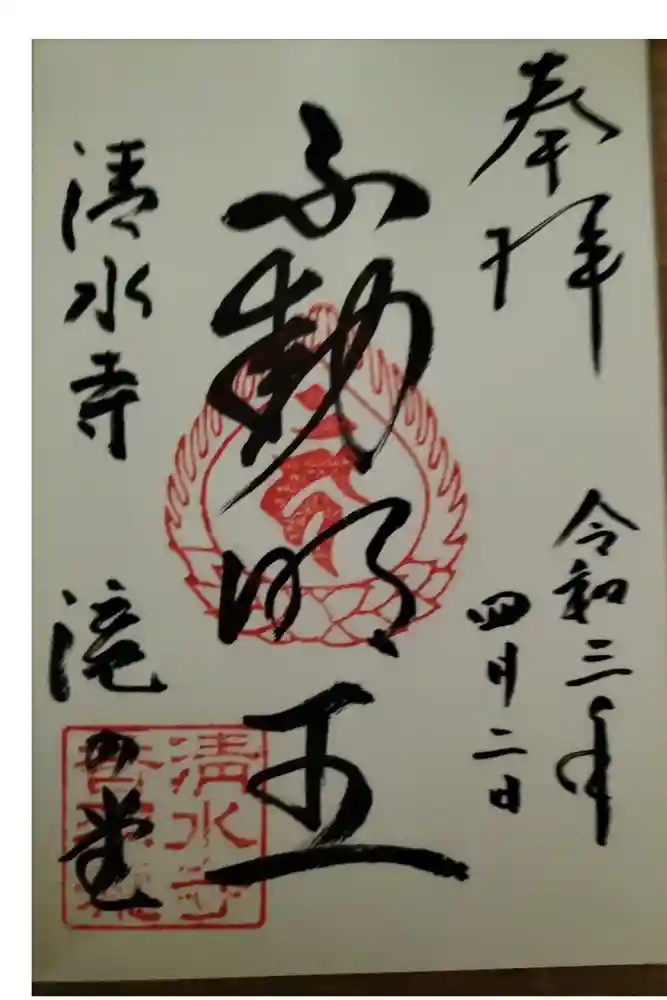 奉拝
令和三年
四月二日
不動明王
清水寺
滝の堂
清水寺